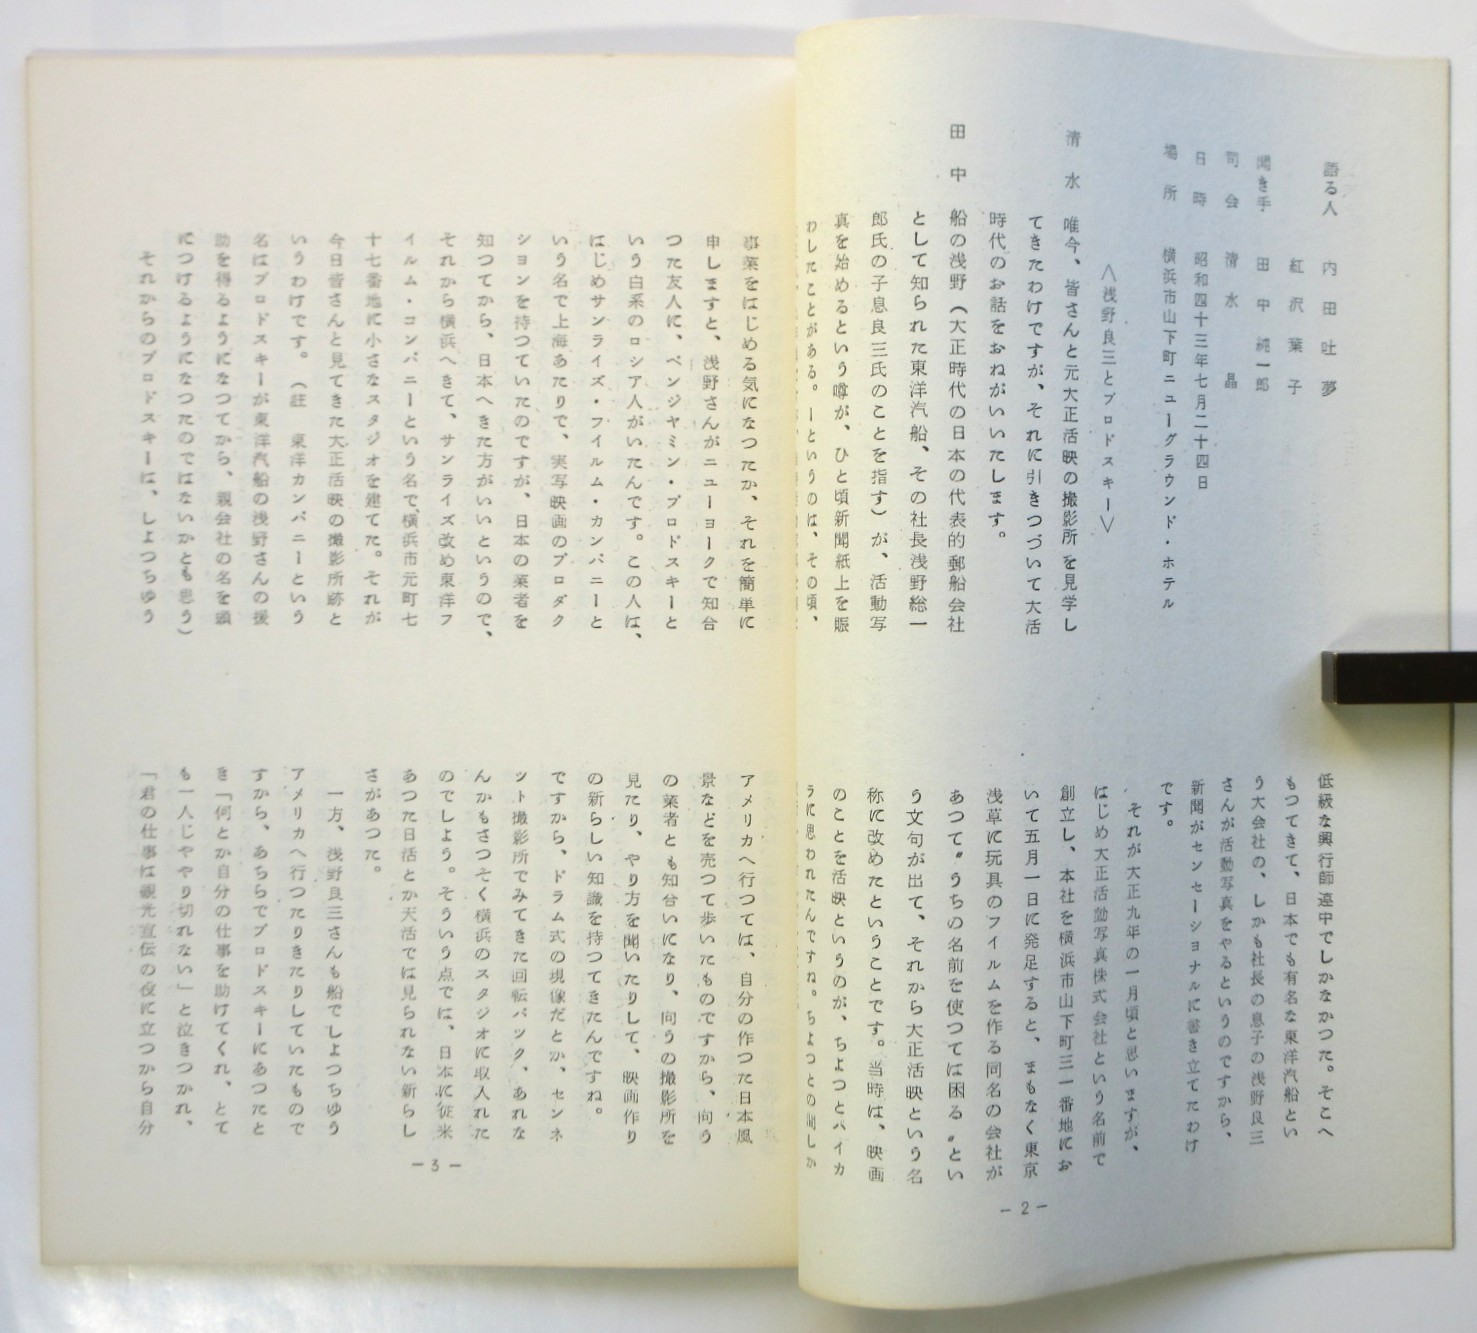 語る人　内田吐夢
紅沢葉子
聞き手　田中純一郎
司会　清水晶
日時　昭和四十三年七月二十四日
場所　横浜市山下町ニューグラウンド・ホテル
〈浅野良三とブロドスキー〉
清水　唯今、皆さんと元大正活映の撮影所を見学し
てきたわけですが、それに引きつづいて大活
時代のお話をおねがいいたします。
田中　船の浅野（大正時代の日本の代表的郵船会社
として知られた東洋汽船、その社長浅野総一
郎氏の子息良三氏のことを指す）が、活動写
真を始めるという噂が、ひと頃新聞紙上を賑
わしたことがある。ーというのは、その頃、
低級な興行師連中でしかなかつた。そこへ
もつてきて、日本でも有名な東洋汽船とい
う大会社の、しかも社長の息子の浅野良三
さんが活動写真をやるというのですから、
新聞がセンセーショナルに書き立てたわけ
です。
それが大正九年の一月頃と思いますが、
はじめ大正活動写真株式会社という名前で
創立し、本社を横浜市山下町三一番地にお
いて五月一日に発足すると、まもなく東京
浅草に玩具のフイルムを作る同名の会社が
あつて〝うちの名前を使つては困る〟とい
う文句が出て、それから大正活映という名
称に改めたということです。当時は、映画
のことを活映というのが、ちよつとハイカ
ラに思われたんですね。ちよつとの間しか
－2－
事業をはじめる気になつたか、それを簡単に
申しますと、浅野さんがニューヨークで知合
つた友人に、ベンジヤミン・ブロドスキーと
いう白系のロシア人がいたんです。この人は、
はじめサンライズ・フイルム・カンパニーと
いう名で上海あたりで、実写映画のプロダク
ションを持つていたのですが、日本の業者を
知つてから、日本へきた方がいいというので、
それから横浜へきて、サンライズ改め東洋フ
イルム・コンパニーという名で、横浜市元町七
十七番地に小さなスタジオを建てた。それが
今日皆さんと見てきた大正活映の撮影所跡と
いうわけです。（註　東洋カンパニーという
名はブロドスキーが東洋汽船の浅野さんの援
助を得るようになつてから、親会社の名を頭
につけるようになつたのではないかとも思う）
それからのブロドスキーは、しよつちゆう
アメリカへ行つては、自分の作つた日本風
景などを売つて歩いたものですから、向う
の業者とも知合いになり、向うの撮影所を
見たり、やり方を聞いたりして、映画作り
の新らしい知識を持つてきたんですね。
ですから、ドラム式の現像だとか、センネ
ット撮影所でみてきた回転バック、あれな
んかもさつそく横浜のスタジオに収入れた
のでしよう。そういう点では、日本に従来
あつた日活とか天活では見られない新らし
さがあつた。
一方、浅野良三さんも船でしよつちゆう
アメリカへ行つたりきたりしていたもので
すから、あちらでブロドスキーにあつたと
き「何とか自分の仕事を助けてくれ、とて
も一人じややり切れない」と泣きつかれ、
「君の仕事は観光宣伝の役に立つから自分
－3－